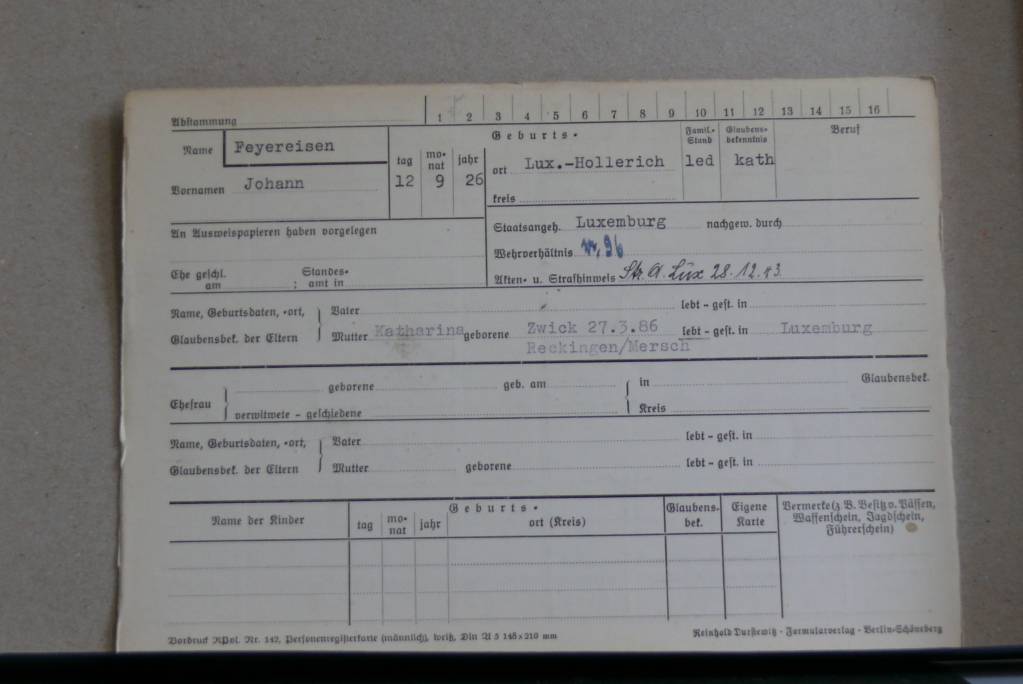 Abstammung 1 2 3 4 5 6 7 8 9 10 11 12 13 14 15 16
Name Feyereisen
Vornamen Johann
tag monat jahr
12 9 26
Geburts-
ort Lux.-Hollerich
kreis
Famil.-Stand
led
Glaubens-bekenntnis
kath
Beruf
An Ausweispapieren haben vorgelegen
Staatsangeh. Luxemburg nachgew. durch
Wehrverhältnis 96
Akten- u. Strafhinweis Str. A. Lux 28.12.43.
Ehe geschl. am ; Standes-amt in
Name, Geburtsdaten, -ort, Vater lebt - gest. in
Glaubensbek. der Eltern Mutter Katharina geborene Zwick 27.3.86 lebt - gest. in Luxemburg
Reckingen/Mersch
Ehefrau geborene geb. am in Glaubensbek.
verwitwete - geschiedene Kreis
Name, Geburtsdaten, -ort, Vater lebt - gest. in
Glaubensbek. der Eltern Mutter geborene lebt - gest. in
Name der Kinder
Geburts-
tag monat jahr ort (Kreis)
Glaubens-bek.
Eigene Karte
Vermerke (z. B. Besitz v. Pässen,
Waffenschein, Jagdschein,
Führerschein)
Vordruck RPol. Nr. 142, Personenregisterkarte (männlich), weiß, Din A 5 148 x 210 mm
Reinhold Durstewitz · Formularverlag · Berlin-Schöneberg